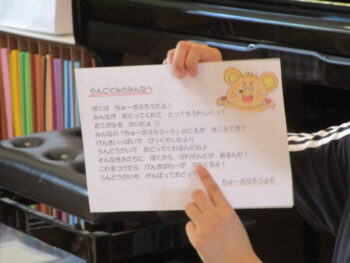 りんごぐみのみんなへ
ぼくは ちゅーざぶろうだよ！
みんなが おどってくれて とってもうれしくって
おてがみを かいたよ♡
みんなの「ちゅーざぶろうーっ!!」のこえが きこえてきて
げんきいっぱいで びっくりしたよ♡
うんどうかいで おどってくれるんだね♪
そんなきみたちに ぼくから ぷれぜんとが あるんだ！
これをつけたら げんきぱわーが でてくるよ！
うんどうかいも がんばっておどって
ちゅーざぶろうより